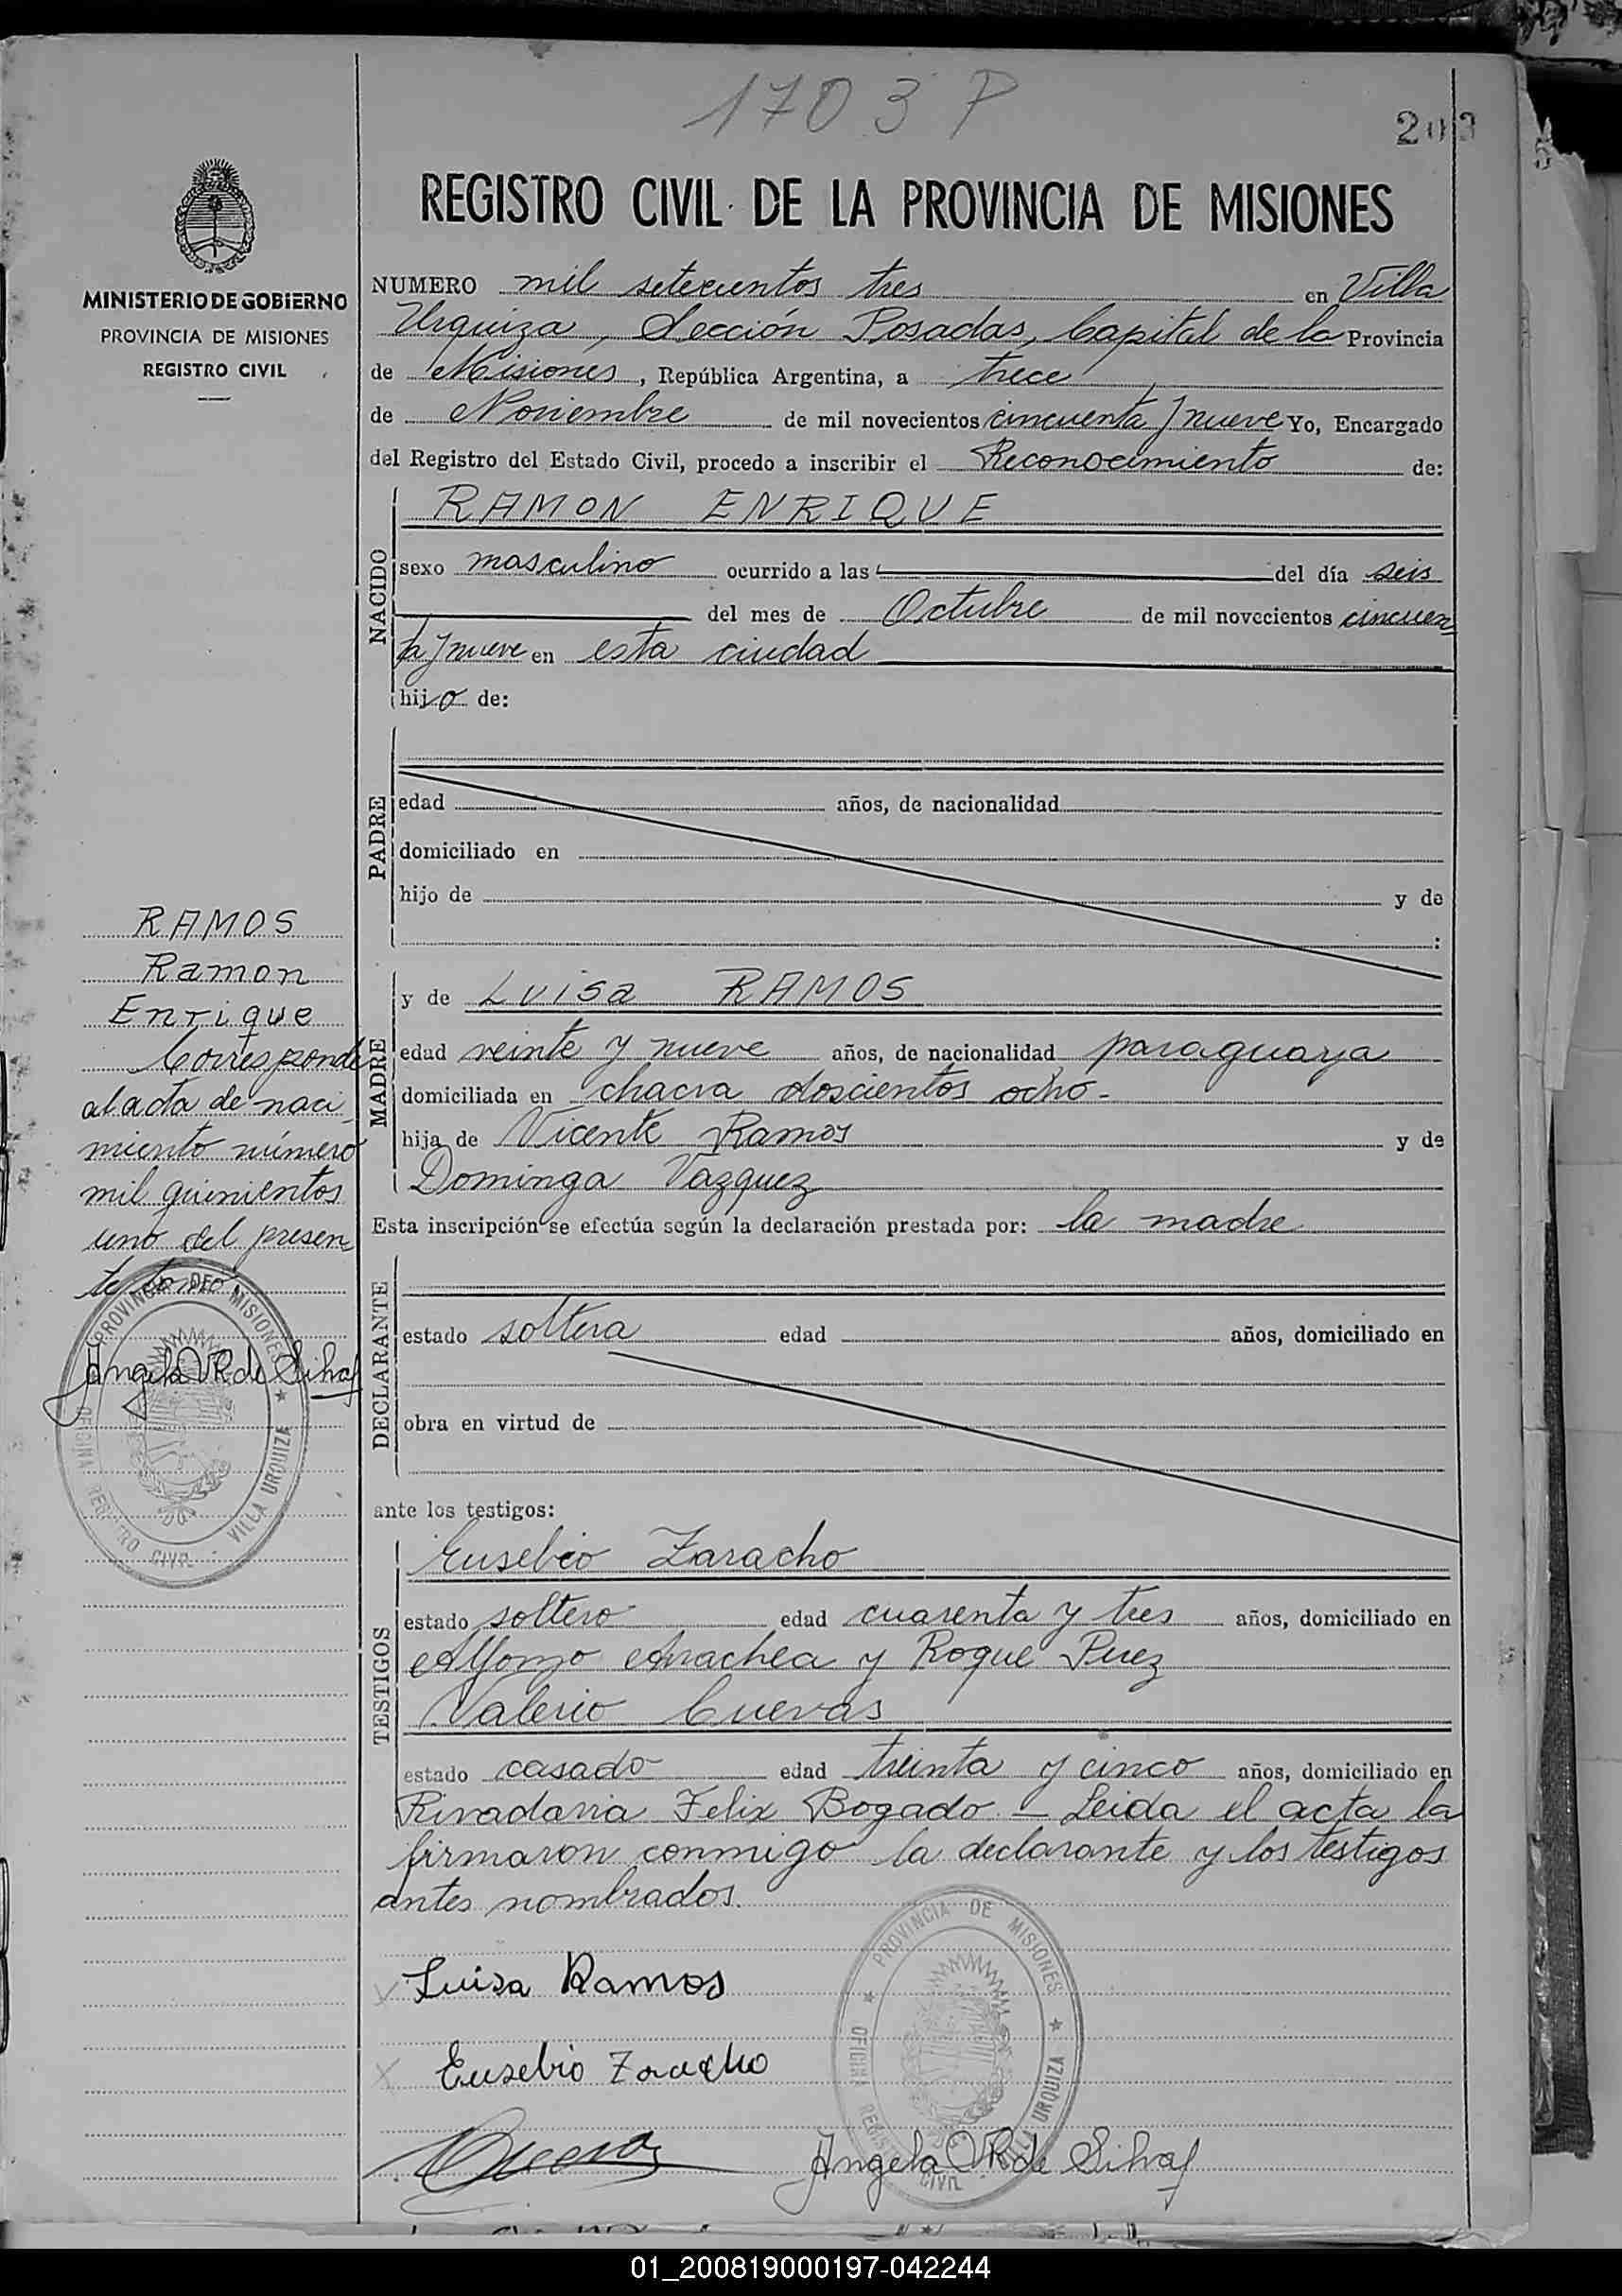 1703 P
203
REGISTRO CIVIL DE LA PROVINCIA DE MISIONES
MINISTERIO DE GOBIERNO
PROVINCIA DE MISIONES
REGISTRO CIVIL
NUMERO mil setecientos tres en Villa
Urquiza, Sección Posadas, Capital de la Provincia
de Misiones, República Argentina, a trece
de Noviembre de mil novecientos cincuenta y nueve Yo, Encargado
del Registro del Estado Civil, procedo a inscribir el Reconocimiento de:
NACIDO
RAMON ENRIQUE
sexo masculino ocurrido a las del día seis
del mes de Octubre de mil novecientos cincuen
ta y nueve en esta ciudad
hijo de:
PADRE
edad años, de nacionalidad
domiciliado en
hijo de y de
:
RAMOS
Ramon
Enrique
Corresponde
al acta de naci
miento número
mil quinientos
uno del presen
te tomo
PROVINCIA DE MISIONES
OFICINA REGISTRO CIVIL - VILLA URQUIZA
Angela V R de Silva
MADRE
y de Luisa RAMOS
edad veinte y nueve años, de nacionalidad paraguaya
domiciliada en chacra doscientos ocho-
hija de Vicente Ramos y de
Dominga Vazquez
Esta inscripción se efectúa según la declaración prestada por: la madre
DECLARANTE
estado soltera edad años, domiciliado en
obra en virtud de
ante los testigos:
TESTIGOS
Eusebio Zaracho
estado soltero edad cuarenta y tres años, domiciliado en
Alfonzo Arrachea y Roque Perez
Valerio Cuevas
estado casado edad treinta y cinco años, domiciliado en
Rivadavia Felix Bogado - Leida el acta la
firmaron conmigo la declarante y los testigos
antes nombrados.
Luisa Ramos
Eusebio Zaracho
PROVINCIA DE MISIONES
OFICINA REGISTRO CIVIL - VILLA URQUIZA
Angela V R de Silva
01_200819000197-042244